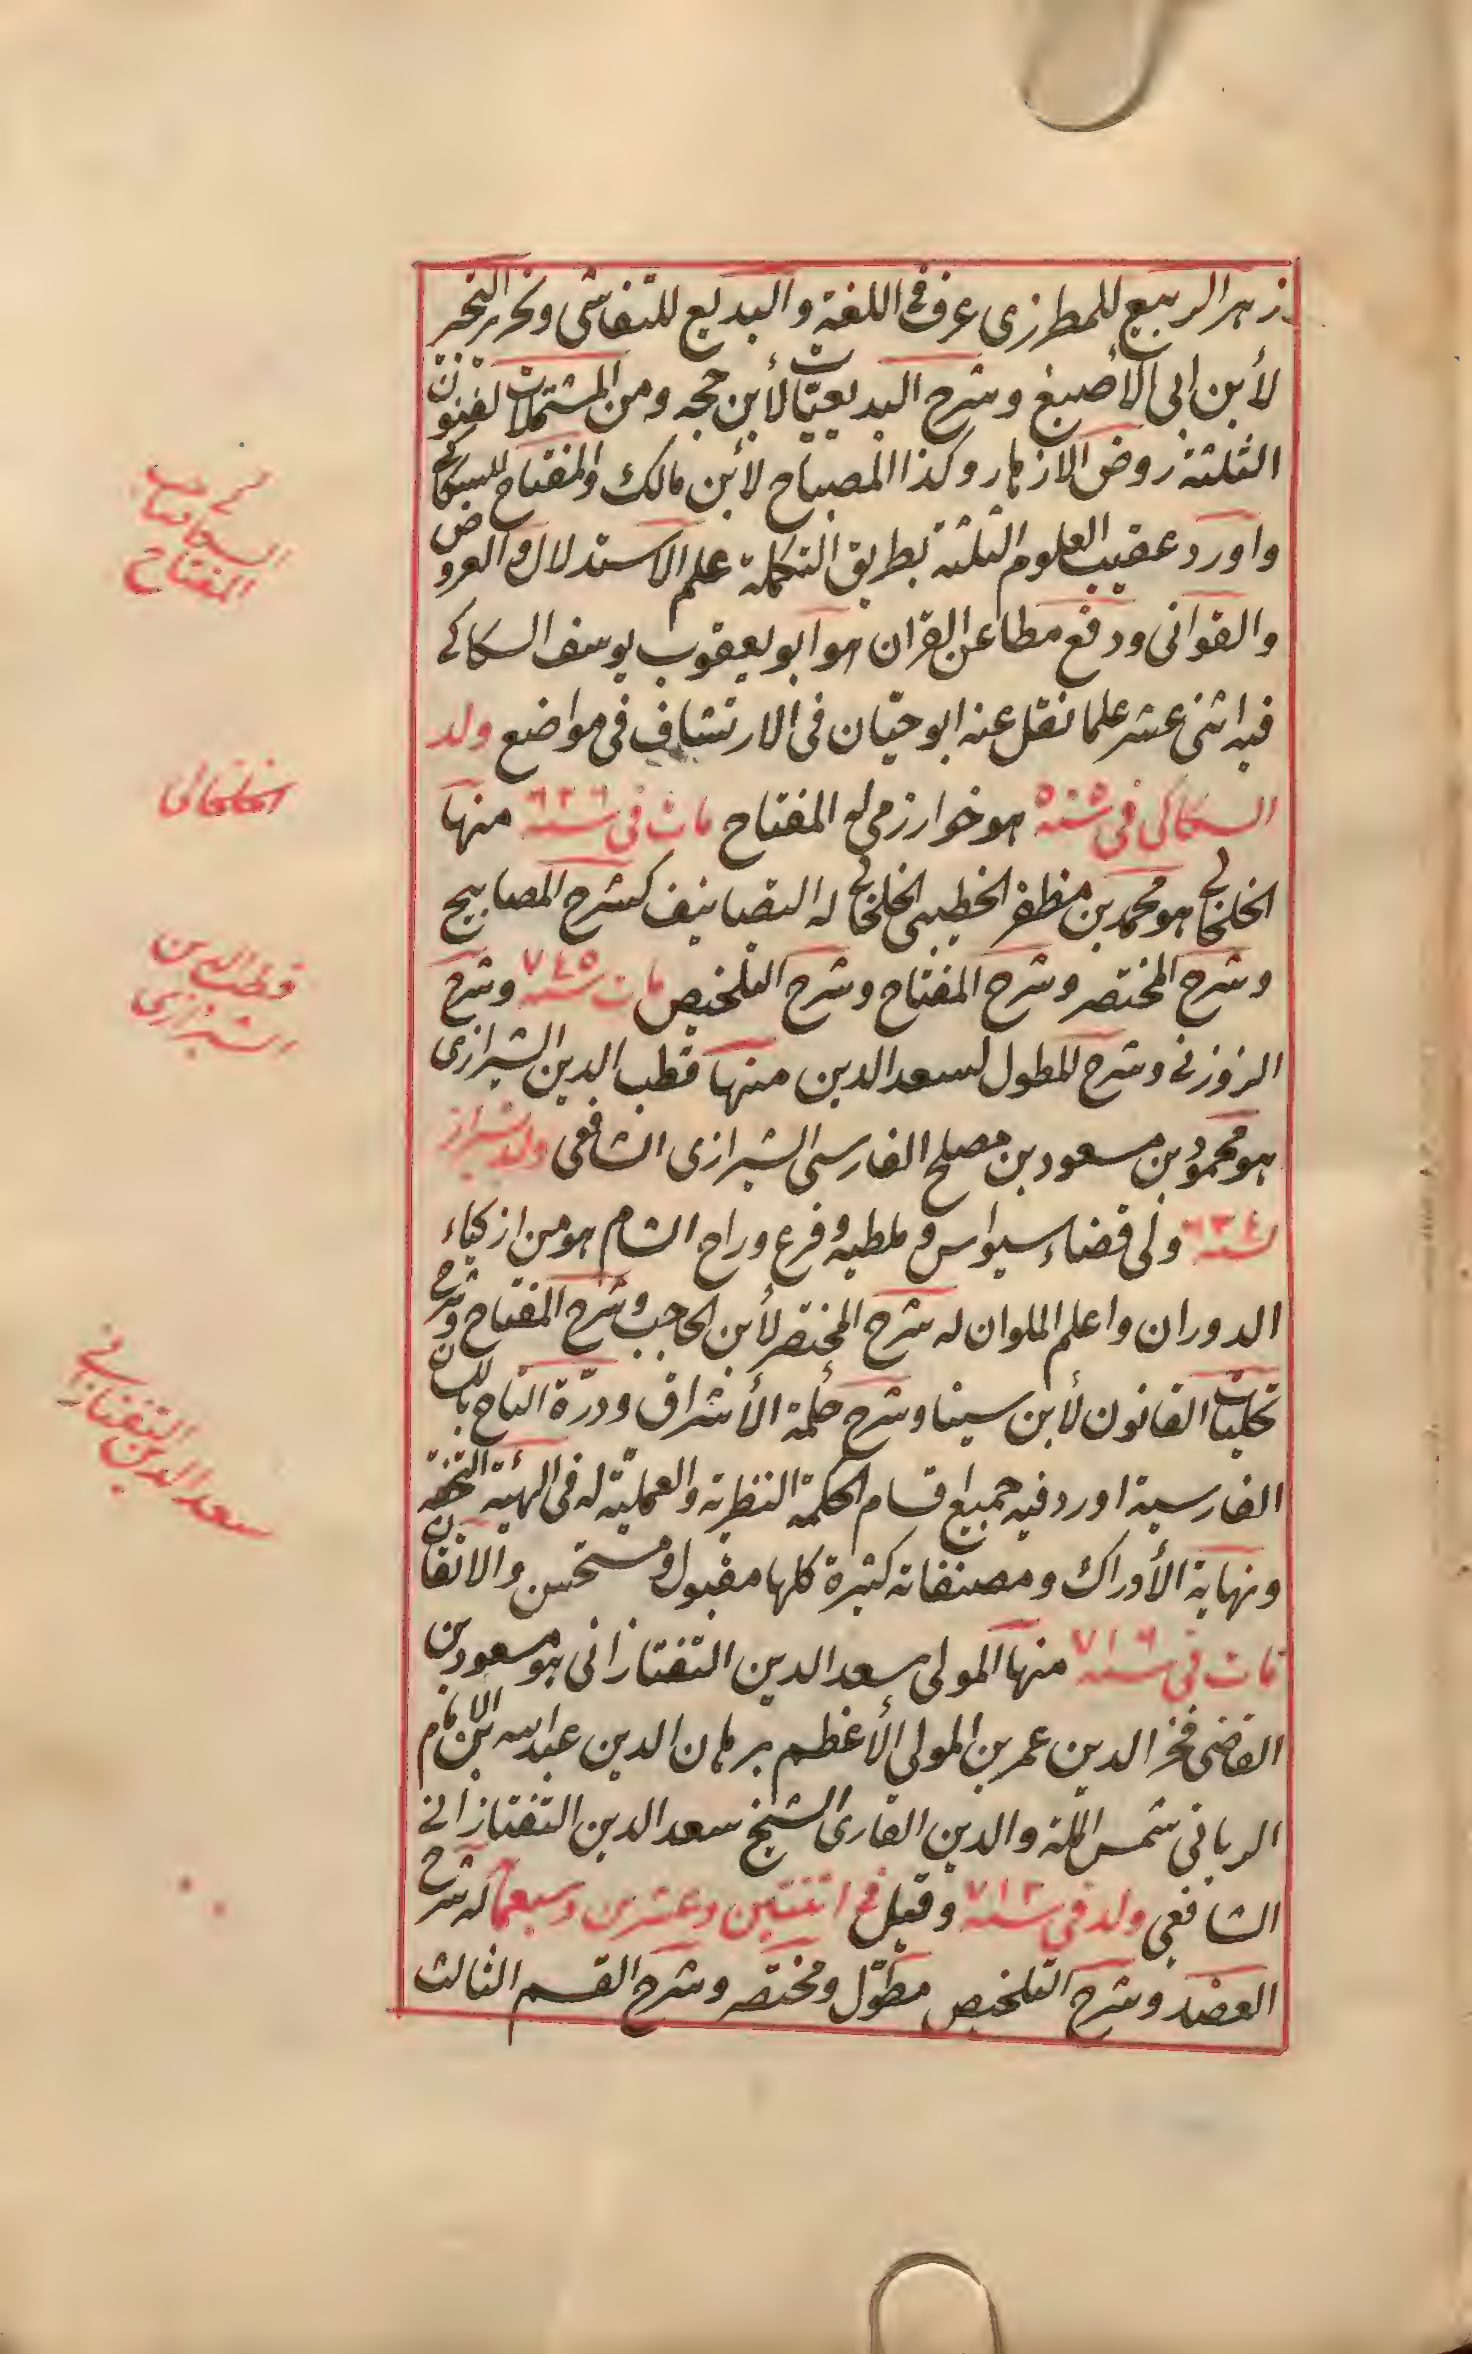 زهر الربيع للمطرزى عرف فى اللغة والبديع للتفاشى وتحرير التحبر
لأبن ابى الأصبغ وشرح البديعيّات لأبن حجه ومن المشتملات لفنون
الثلثة روض الازهار وكذا المصباح لأبن مالك والمفتاح للسكاكى
واورد عقيب العلوم الثلثة بطريق التكملة علم الاستدلال والعروض
والقوانى ودفع مطاعن القران هو ابو يعقوب يوسف السكاكى
فيه اثنى عشر علما نقل عنه ابو حيّان فى الارتشاف فى مواضع ولد
السكاكى فى سنه ٥٥٥ هو خوارزمى له المفتاح مات فى سنه ٦٢٦ منها
الخلخالى هو محمد بن مظفر الخطيبى الخلخالى له التصانيف كشرح المصابيح
وشرح المختصر وشرح المفتاح وشرح التلخيص مات سنه ٧٤٥ وشرح
الزوزنى وشرح المطول لسعد الدين منها قطب الدين الشيرازى
هو محمود بن مسعود بن مصلح الفارسى الشيرازى الشافعى ولد شيراز
سنه ٦٣٤ ولى قضاء سيواس وملطيه وفرع وراح الشام هو من ازكياء
الدوران واعلم الملوان له شرح المختصر لأبن الحاجب وشرح المفتاح وشرح
كليات القانون لأبن سينا وشرح حكمة الأشراق ودرّة التاج باللسان
الفارسية اورد فيه جميع اقسام الحكمة النظرية والعمليّة له فى الهيئة التحفه
ونهاية الأدراك ومصنفاته كثيرة كلها مقبول ومستحسن والاتقان
مات فى سنه ٧١٦ منها المولى سعد الدين التفتازانى هو مسعود بن
القاضى فخر الدين عمر بن المولى الأعظم برهان الدين عبد الله ابن الامام
الربانى شمس الملة والدين القارى الشيخ سعد الدين التفتازانى
الشافعى ولد فى سنه ٧١٢ وقيل فى اثنتين وعشرين وسبعما له شرح
العضد وشرح التلخيص مطوّل ومختصر وشرح القسم الثالث
السكاكى صاحب
المفتاح
الخلخالى
قطب الدين
الشيرازى
سعد الدين التفتازانى